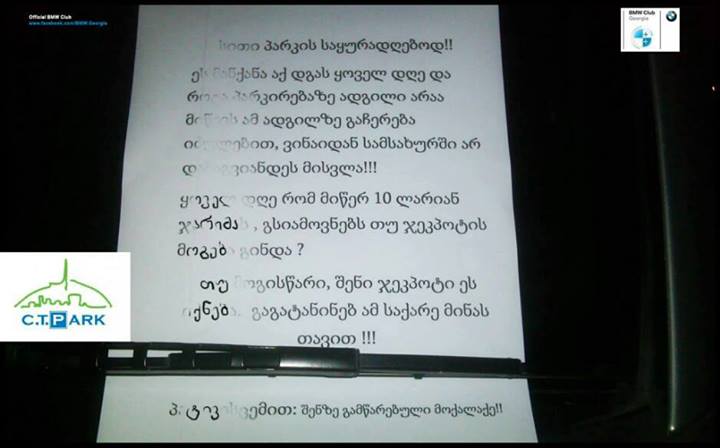 Official BMW Club
www.facebook.com/BMW.Georgia
BMW Club
Georgia
სითი პარკის საყურადღებოდ!!
ეს მანქანა აქ დგას ყოველ დღე და
როცა პარკირებაზე ადგილი არაა
მიწევს ამ ადგილზე გაჩერება
იძულებით, ვინაიდან სამსახურში არ
დამაგვიანდეს მისვლა!!!
ყოველ დღე რომ მიწერ 10 ლარიან
ჯარიმას, გსიამოვნებს თუ ჯეკპოტის
მოგება გინდა ?
თუ მოგისწარი, შენი ჯეკპოტი ეს
იქნება. გაგატანინებ ამ საქარე მინას
თავით !!!
C.T.PARK
პატივისცემით: შენზე გამწარებული მოქალაქე!!